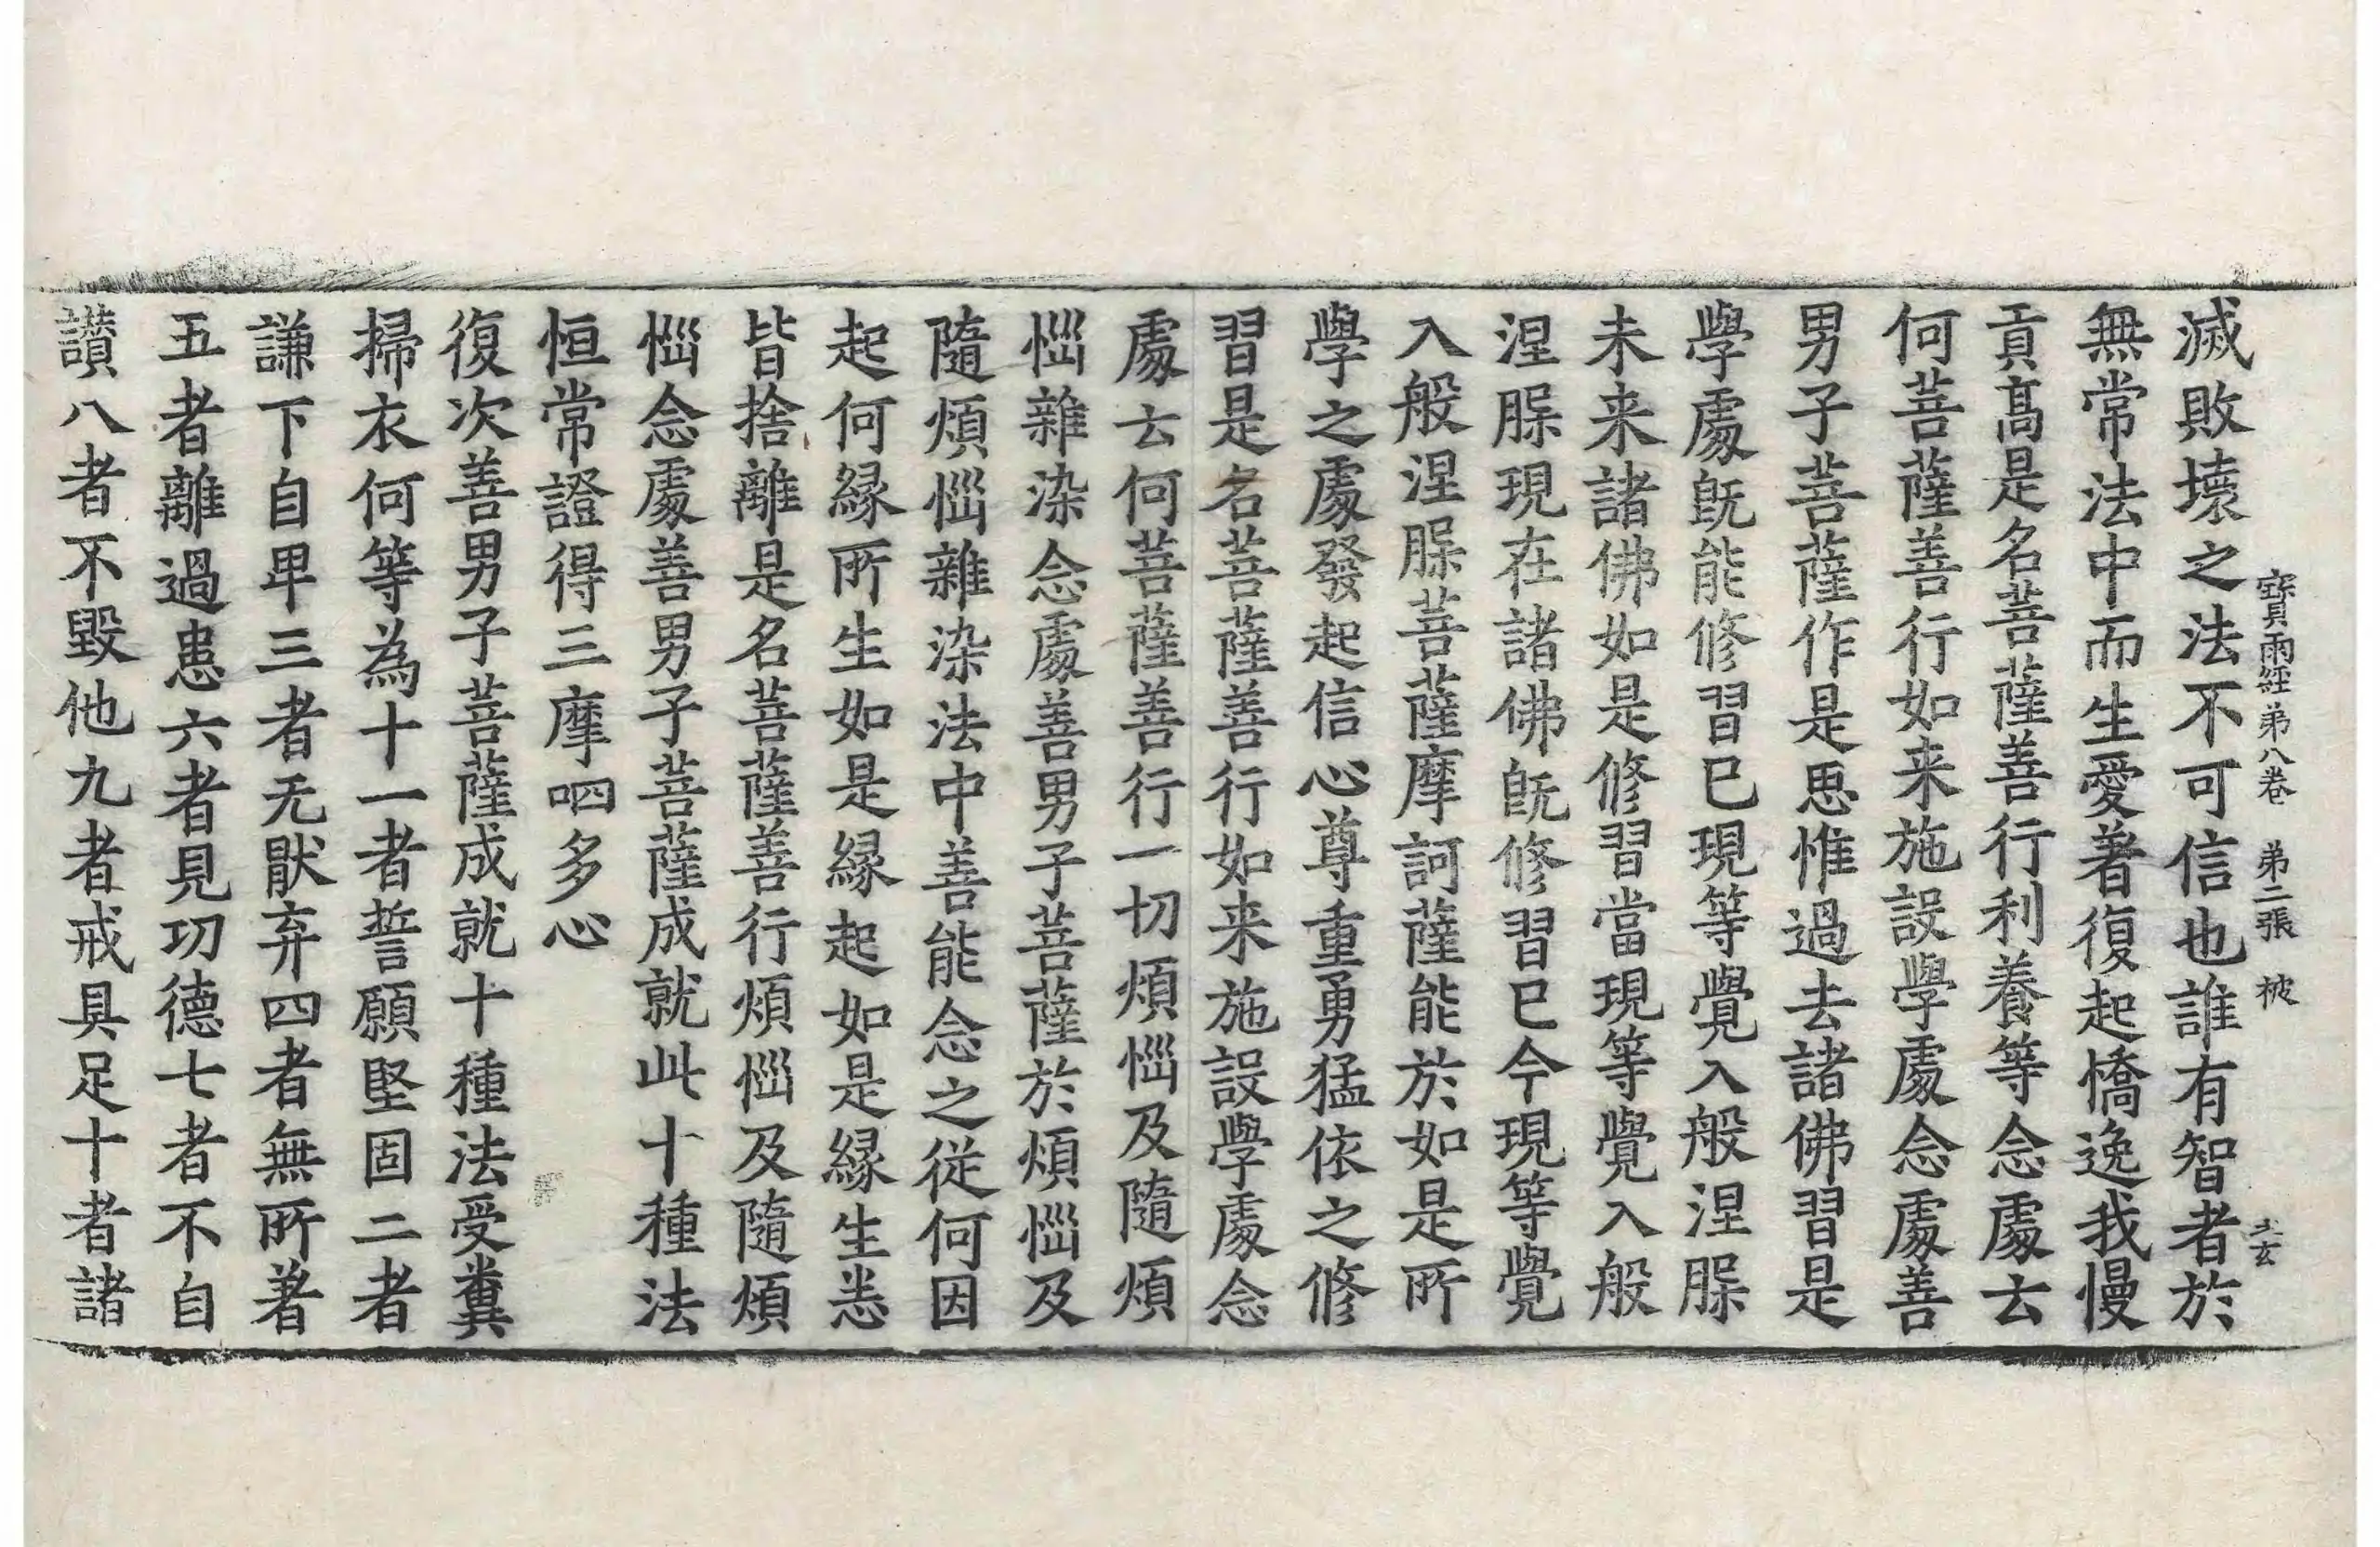 寶雨經弟八卷 弟二張 被
滅敗壞之法不可信也誰有智者於
無常法中而生愛著復起憍逸我慢
貢髙是名菩薩善行利養等念處云
何菩薩善行如来施設學處念處善
男子菩薩作是思惟過去諸佛習是
學處旣能修習已現等覺入般涅脲
未来諸佛如是修習當現等覺入般
涅脲現在諸佛旣修習已今現等覺
入般涅脲菩薩摩訶薩能於如是所
學之處發起信心尊重勇猛依之修
習是名菩薩善行如来施設學處念
處云何菩薩善行一切煩惱及隨煩
惱雜染念處善男子菩薩於煩惱及
隨煩惱雜染法中善能念之從何因
起何緣所生如是緣起如是緣生悉
皆捨離是名菩薩善行煩惱及隨煩
惱念處善男子菩薩成就此十種法
恒常證得三摩呬多心
復次善男子菩薩成就十種法受糞
掃衣何等為十一者誓願堅固二者
謙下自卑三者无猒弃四者無所著
五者離過患六者見功德七者不自
讃八者不毀他九者戒具足十者諸